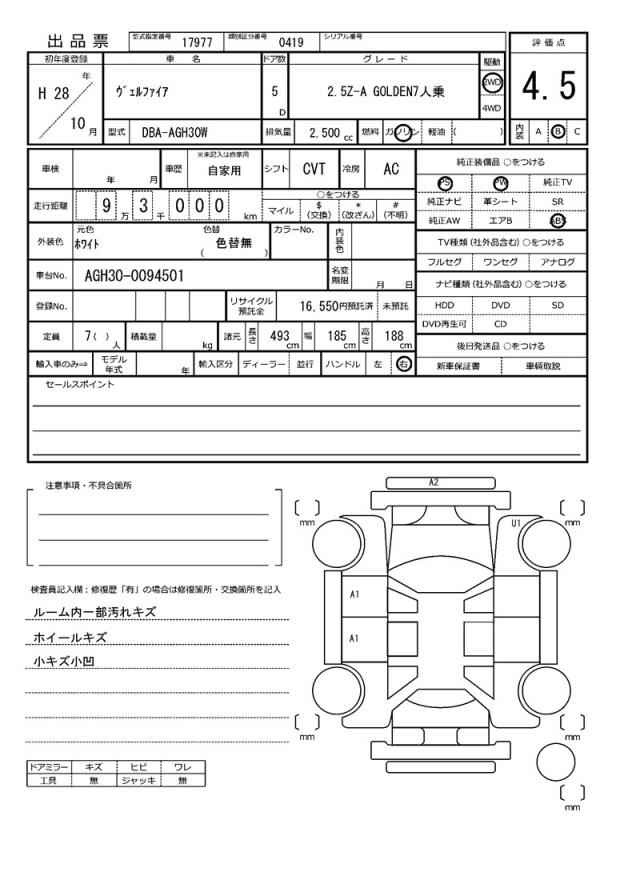 出品票 型式指定番号 17977 類別区分番号 0419 シリアル番号
評価点
4.5
内装 A B C
初年度登録 車名 ドア数 グレード 駆動
H 28 年 10 月
ヴェルファイア 5 D 2.5Z-A GOLDEN7人乗 2WD 4WD
型式 DBA-AGH30W 排気量 2,500 cc 燃料 ガソリン 軽油 ( )
車検 年 月 車歴 ※未記入は自家用 自家用 シフト CVT 冷房 AC
走行距離 9 万 3 千 0 0 0 km
○をつける
マイル $ (交換) * (改ざん) # (不明)
外装色 元色 ホワイト 色替 色替無 ( ) カラーNo. 内装色
車台No. AGH30-0094501 名変期限 月 日
登録No. リサイクル預託金 16,550円預託済 未預託
定員 7( ) 人 積載量 kg 諸元 長さ 493 cm 幅 185 cm 高さ 188 cm
輸入車のみ⇒ モデル年式 年 輸入区分 ディーラー 並行 ハンドル 左 右
純正装備品 ○をつける
PS PW 純正TV
純正ナビ 革シート SR
純正AW エアB ABS
TV種類 (社外品含む) ○をつける
フルセグ ワンセグ アナログ
ナビ種類 (社外品含む) ○をつける
HDD DVD SD
DVD再生可 CD
後日発送品 ○をつける
新車保証書 車輌取説
セールスポイント
注意事項・不具合箇所
検査員記入欄：修復歴「有」の場合は修復箇所・交換箇所を記入
ルーム内一部汚れキズ
ホイールキズ
小キズ小凹
ドアミラー キズ ヒビ ワレ
工具 無 ジャッキ 無
A2
mm
mm
U1
A1
A1
mm
mm
mm